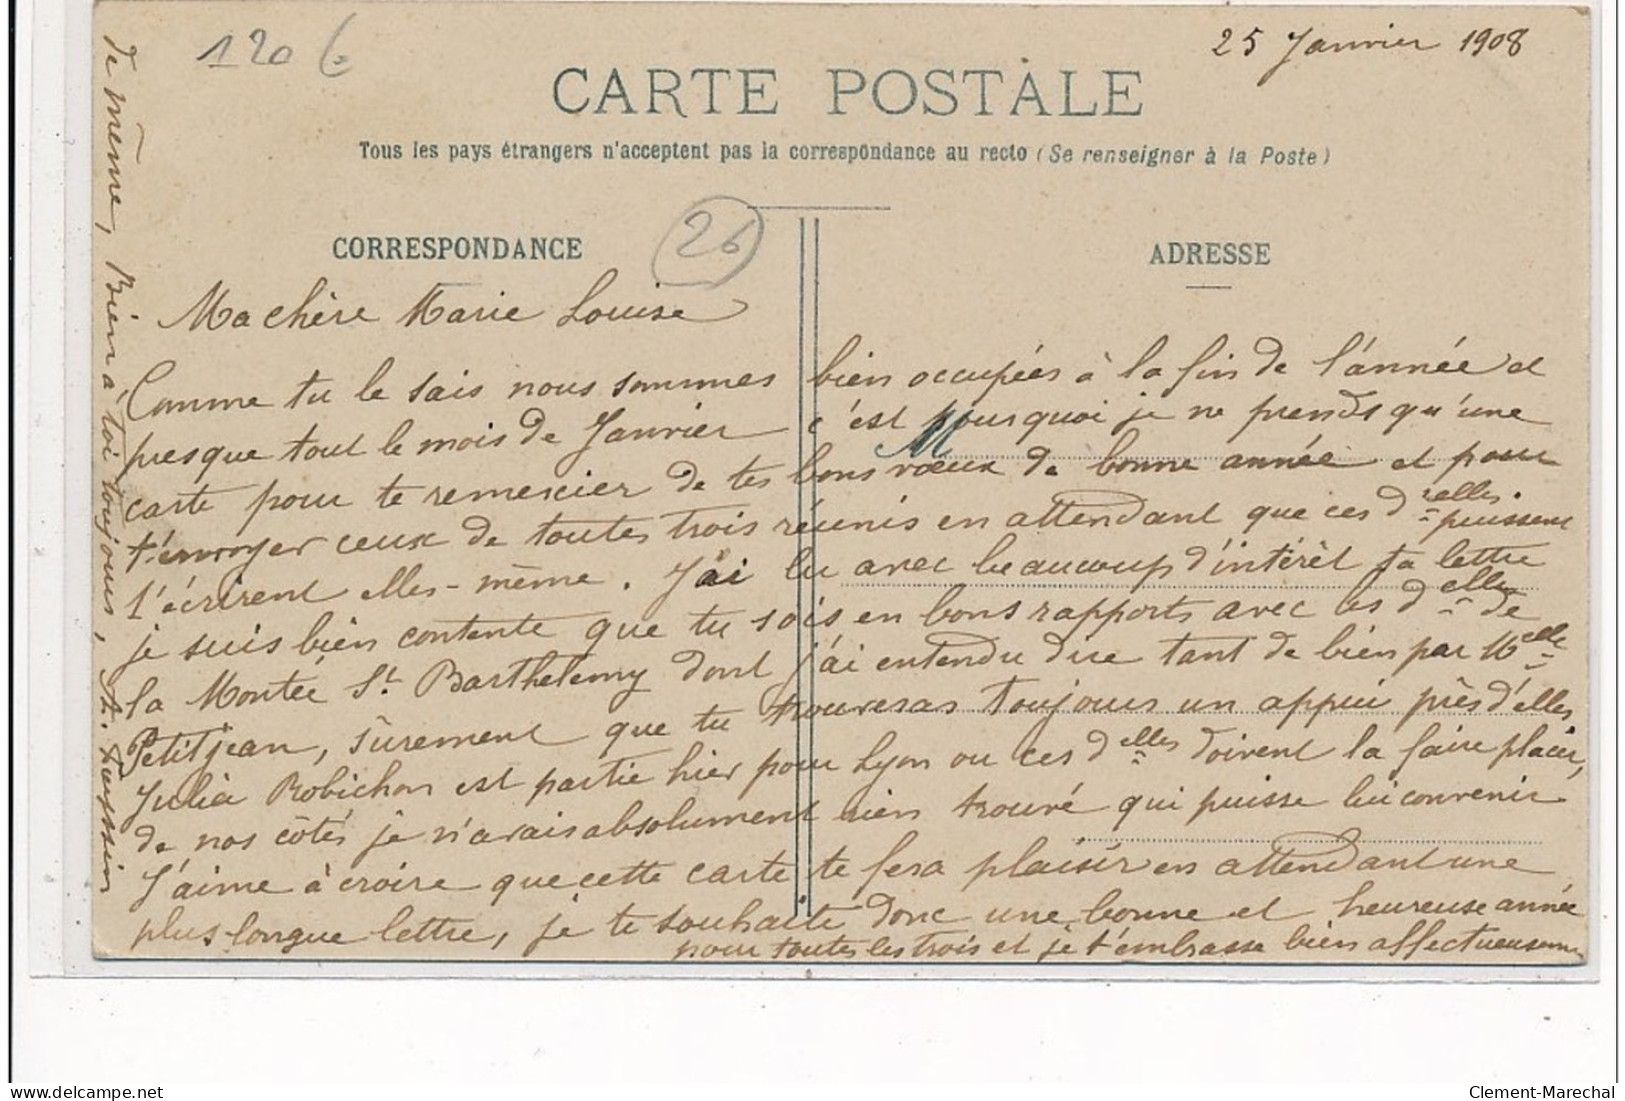 25 Janvier 1908
120 €
CARTE POSTALE
Tous les pays étrangers n'acceptent pas la correspondance au recto (Se renseigner à la Poste)
26
CORRESPONDANCE
ADRESSE
M
Ma chère Marie Louise
Comme tu le sais nous sommes bien occupées à la fin de l'année et
presque tout le mois de Janvier c'est pourquoi je ne prends qu'une
carte pour te remercier de tes bons vœux de bonne année et pour
t'envoyer ceux de toutes trois réunis en attendant que ces delles puissent
t'écrirent elles-même. J'ai lu avec beaucoup d'intérêt ta lettre
je suis bien contente que tu sois en bons rapports avec les delles de
la Montée St Barthelemy dont j'ai entendu dire tant de bien par Melle
Petitjean, sûrement que tu trouveras toujours un appui près d'elles
Julia Robichon est partie hier pour Lyon ou ces delles doivent la faire placer,
de nos côtés je n'avais absolument rien trouvé qui puisse lui convenir
J'aime à croire que cette carte te fera plaisir en attendant une
plus longue lettre, je te souhaite donc une bonne et heureuse année
pour toutes les trois et je t'embrasse bien affectueusem
de même, Bien à toi toujours, A.
Clement-Marechal